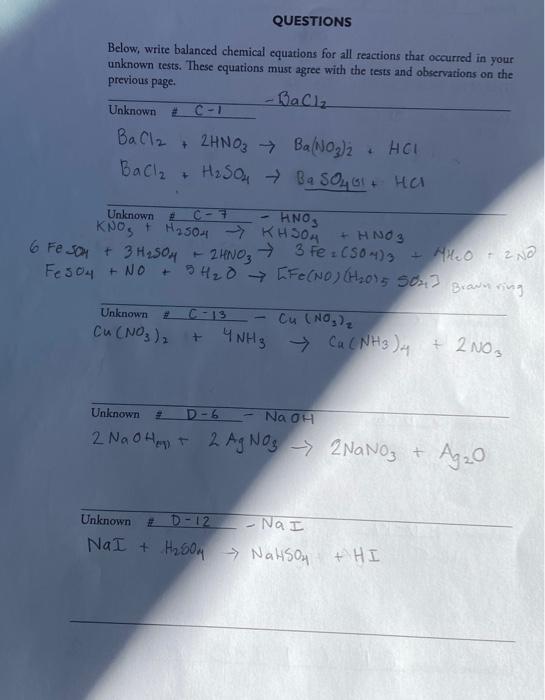 QUESTIONS
Below, write balanced chemical equations for all reactions that occurred in your
unknown tests. These equations must agree with the tests and observations on the
previous page.
Unknown # C-1 - BaCl2
BaCl2 + 2HNO3 → Ba(NO3)2 + HCl
BaCl2 + H2SO4 → BaSO4(s) + HCl
Unknown # C-7 - HNO3
KNO3 + H2SO4 → KHSO4 + HNO3
6 FeSO4 + 3H2SO4 + 2HNO3 → 3 Fe2(SO4)3 + 4H2O + 2NO
FeSO4 + NO + 5H2O → [Fe(NO)(H2O)5 SO4] Brown ring
Unknown # C-13 - Cu(NO3)2
Cu(NO3)2 + 4NH3 → Cu(NH3)4 + 2NO3
Unknown # D-6 - NaOH
2NaOH(aq) + 2AgNO3 → 2NaNO3 + Ag2O
Unknown # D-12 - NaI
NaI + H2SO4 → NaHSO4 + HI